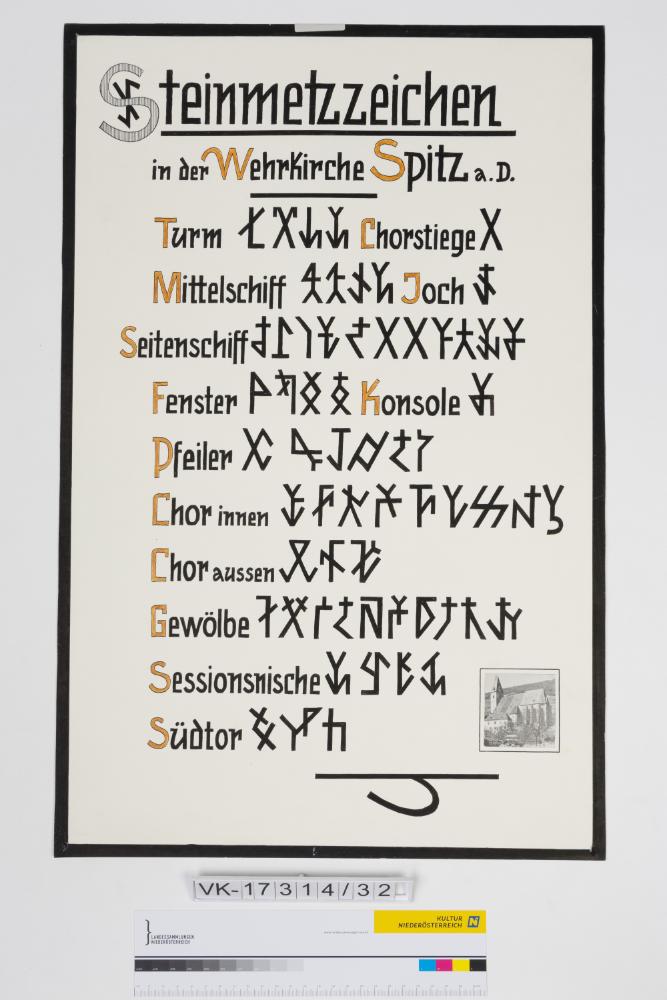 Steinmetzzeichen
in der Wehrkirche Spitz a.D.
Turm Chorstiege
Mittelschiff Joch
Seitenschiff
Fenster Konsole
Pfeiler
Chor innen
Chor aussen
Gewölbe
Sessionsnische
Südtor
VK-17314/32
LANDESSAMMLUNGEN
NIEDERÖSTERREICH
KULTUR
NIEDERÖSTERREICH